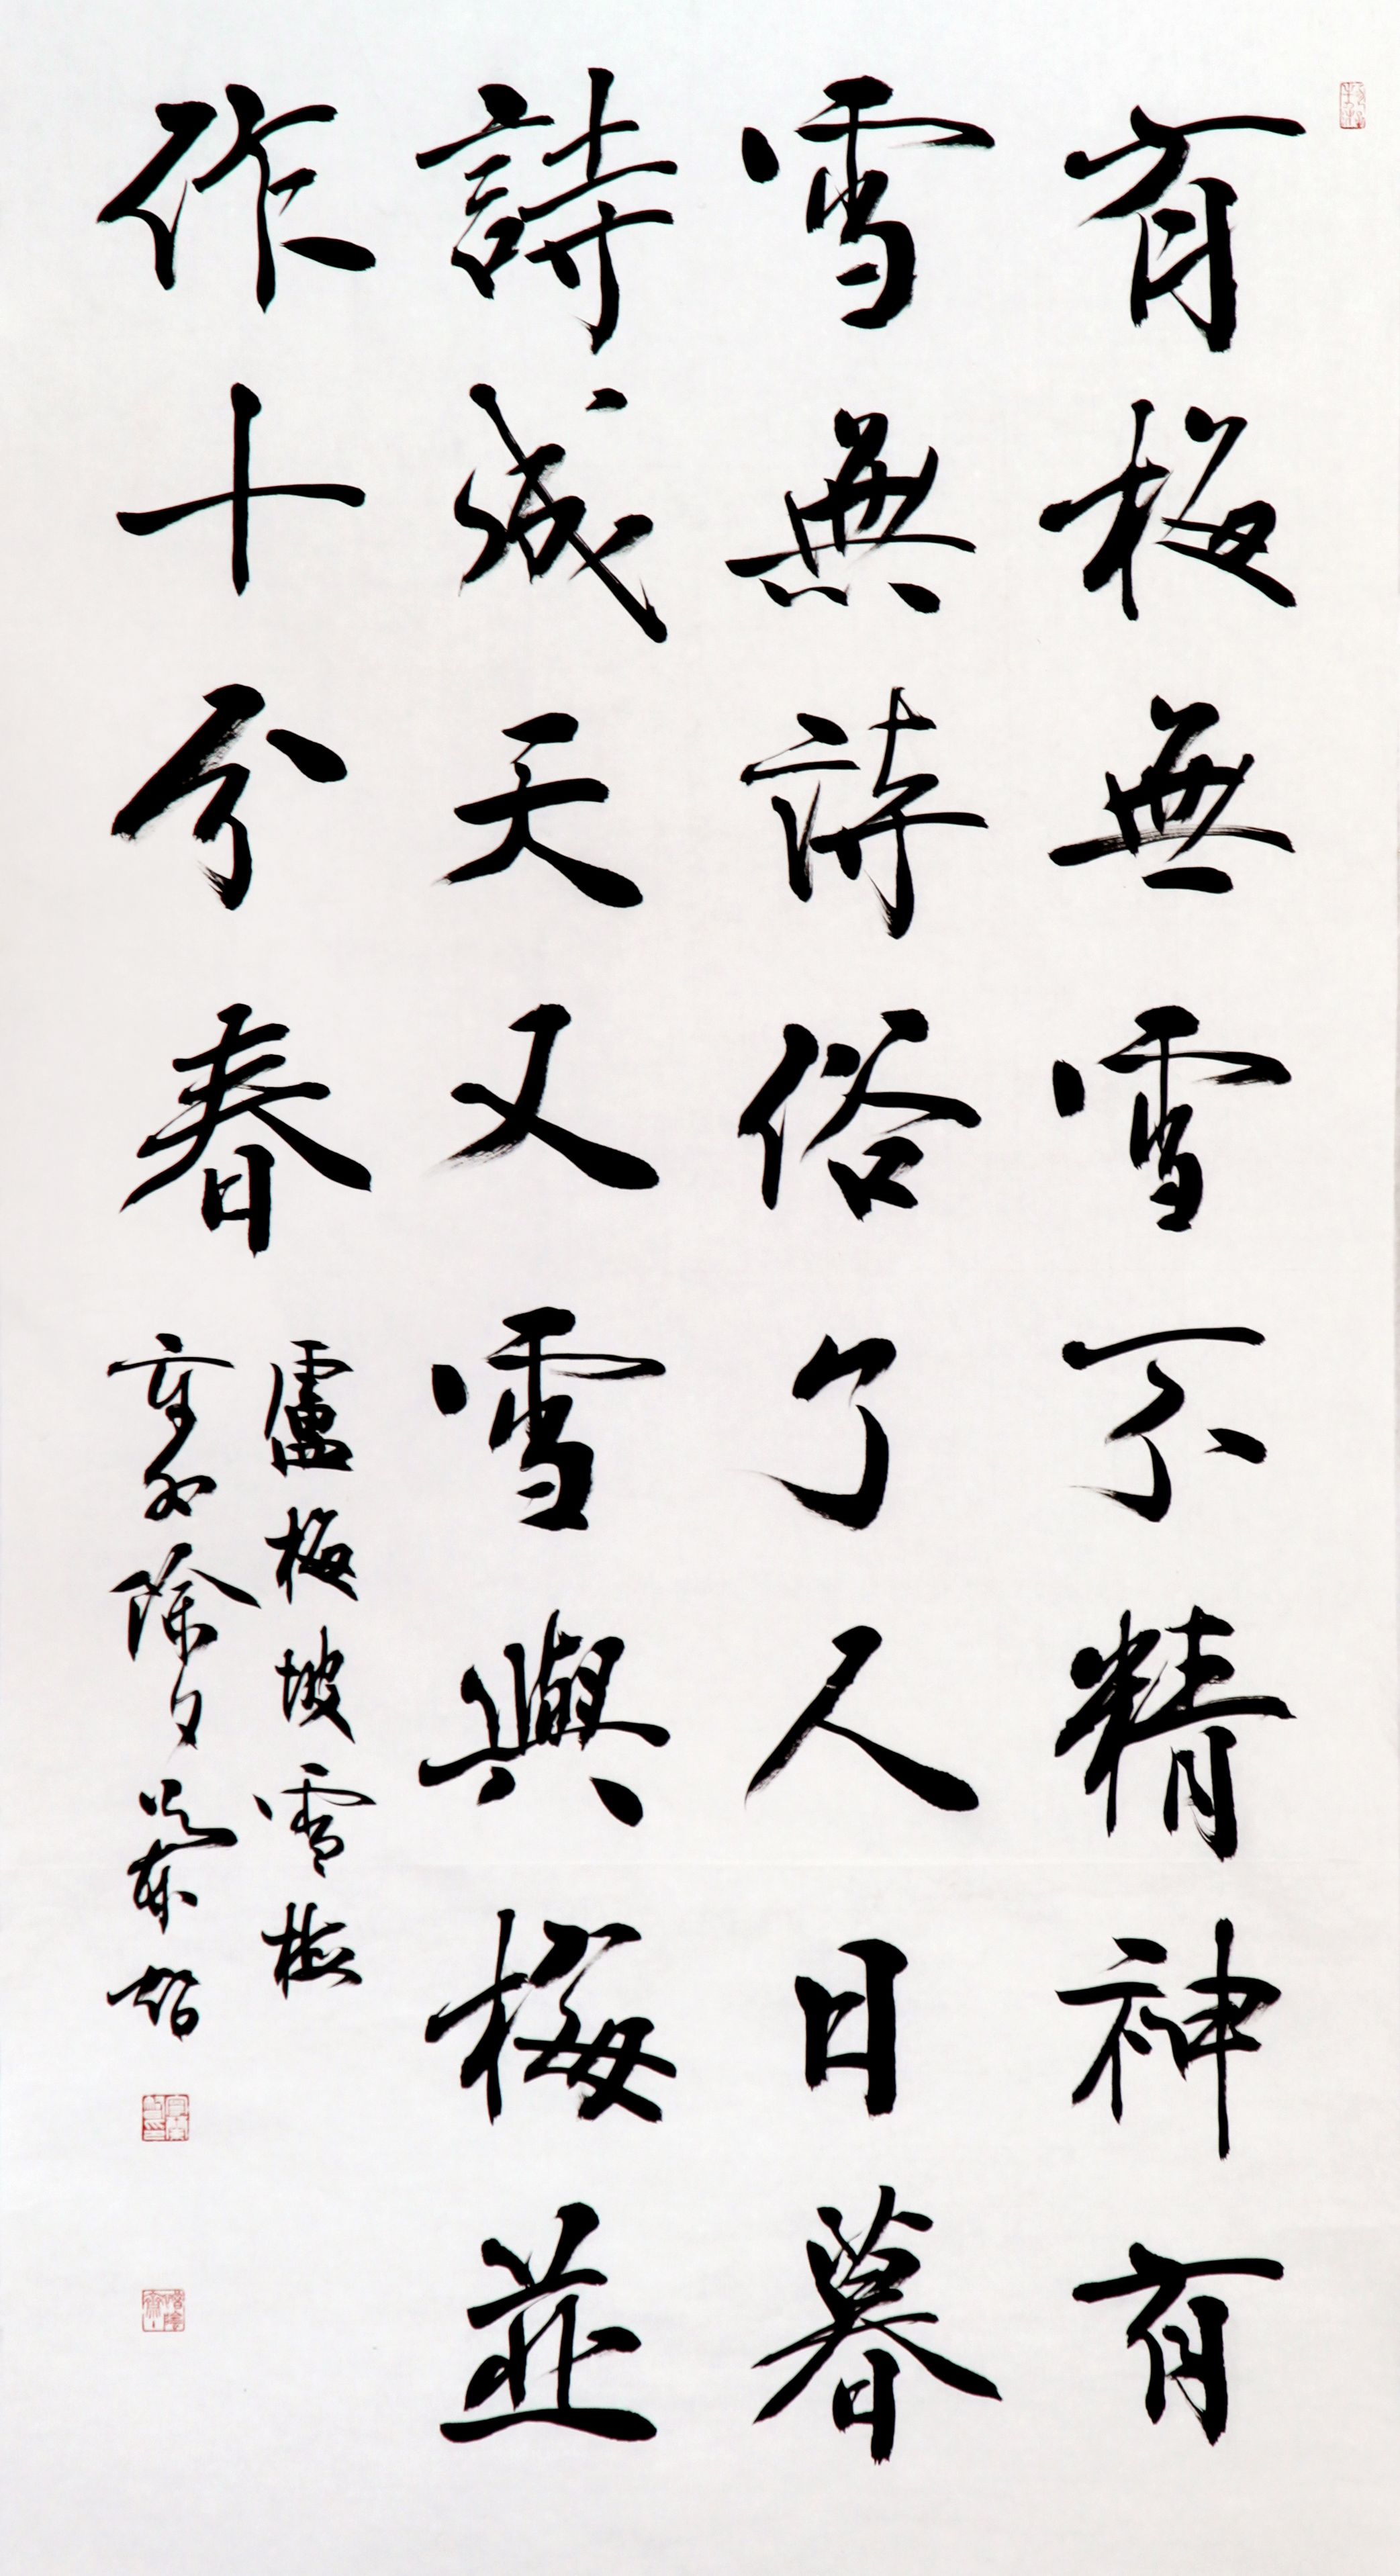 有梅無雪不精神有
雪無詩俗了人日暮
詩成天又雪與梅並
作十分春
盧梅坡雪梅
除夕